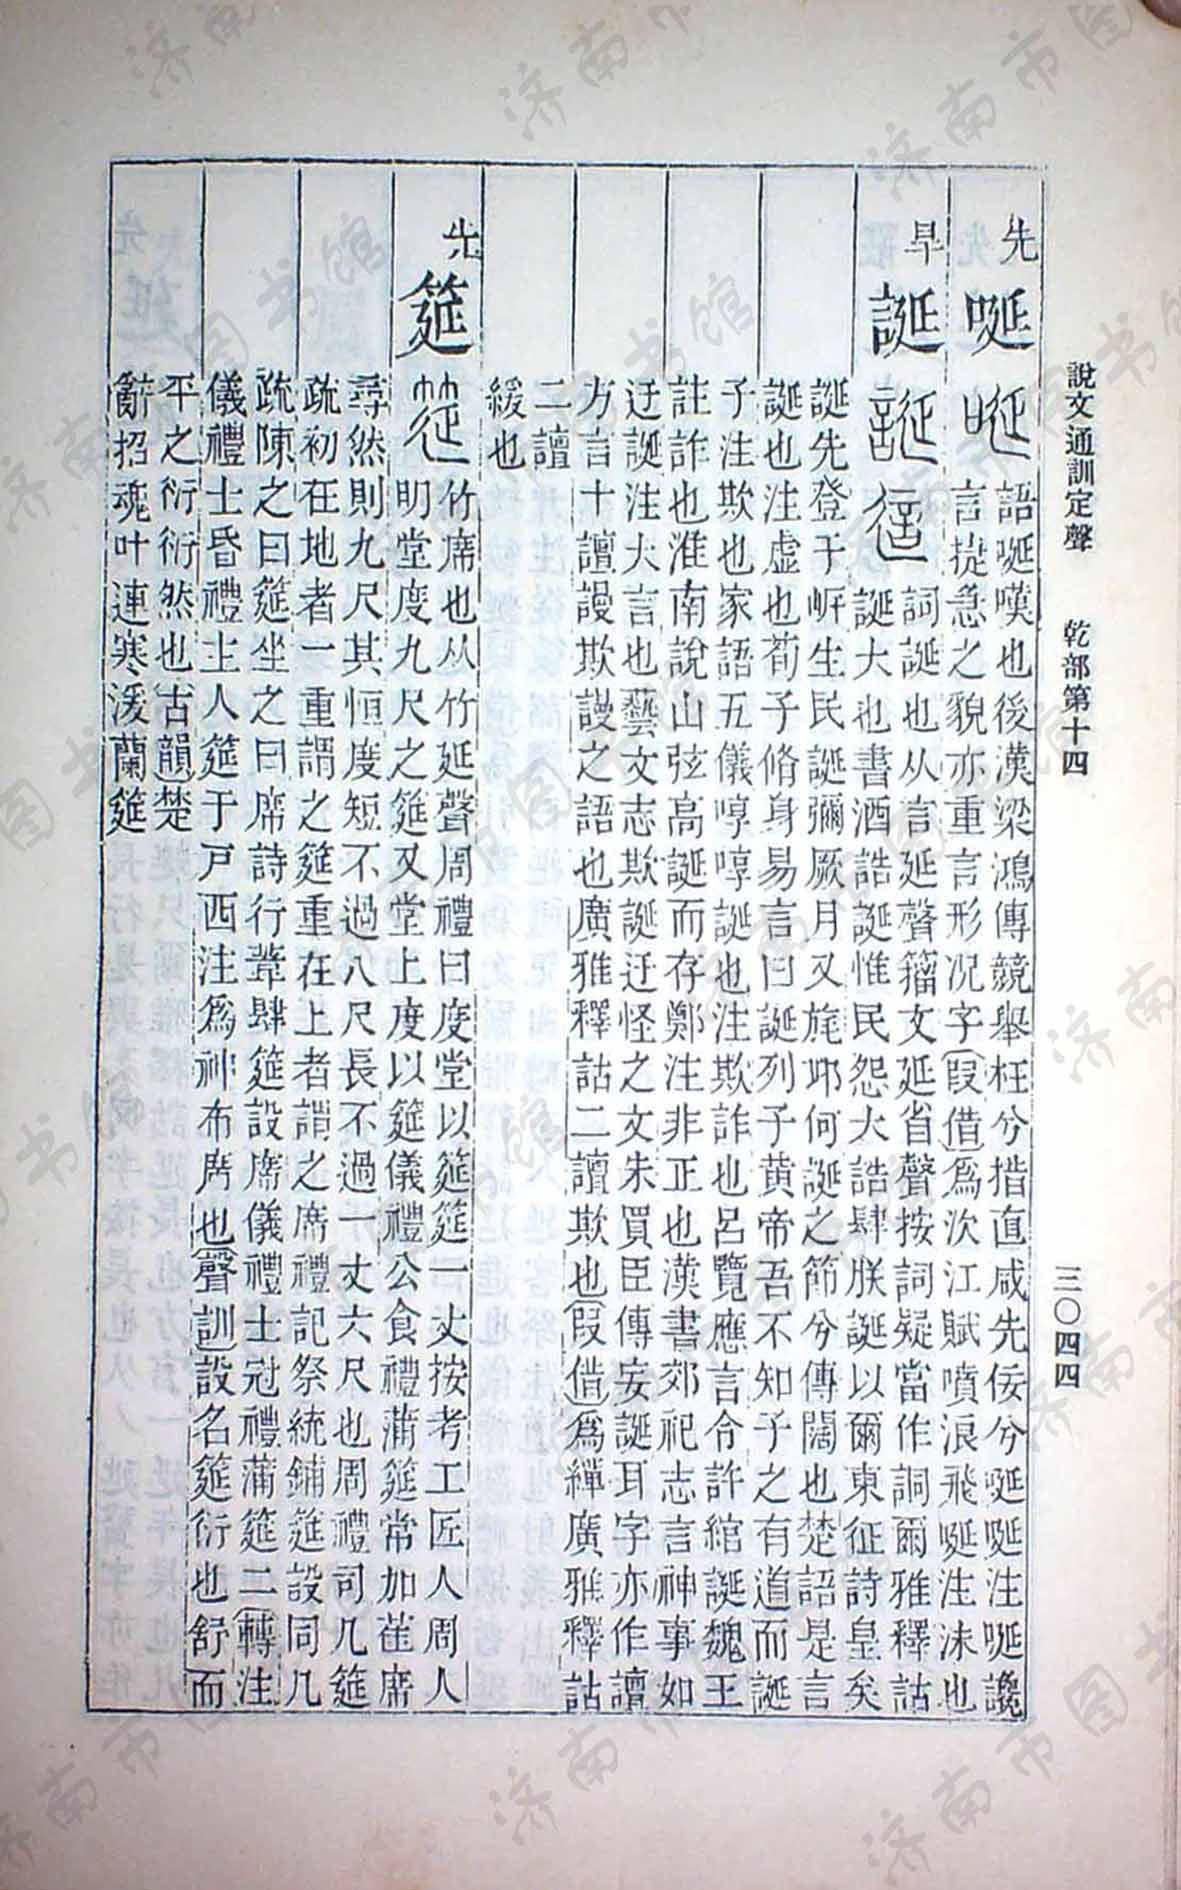 說文通訓定聲　乾部第十四　三〇四四
先
唌　語唌嘆也後漢梁鴻傳競舉枉兮措直咸先佞兮唌唌注唌讒
言捷急之貌亦重言形況字(叚借)爲次江賦噴浪飛唌注沫也
旱
誕　詞誕也从言延聲籀文延省聲按詞疑當作詷爾雅釋詁
誕大也書酒誥誕惟民怨大誥肆朕誕以爾東征詩皇矣
誕先登于岸生民誕彌厥月又旄邱何誕之節兮傳闊也楚語是言
誕也注虛也荀子脩身易言曰誕列子黃帝吾不知子之有道而誕
子注欺也家語五儀哼哼誕也注欺詐也呂覽應言令許綰誕魏王
註詐也淮南說山弦高誕而存鄭注非正也漢書郊祀志言神事如
迂誕注大言也藝文志欺誕迂怪之文朱買臣傳妄誕耳字亦作譠
方言十譠謾欺謾之語也廣雅釋詁二譠欺也(叚借)爲繟廣雅釋詁
二譠
緩也
先
筵　竹席也从竹延聲周禮曰度堂以筵筵一丈按考工匠人周人
明堂度九尺之筵又堂上度以筵儀禮公食禮蒲筵常加萑席
尋然則九尺其恒度短不過八尺長不過一丈六尺也周禮司几筵
疏初在地者一重謂之筵重在上者謂之席禮記祭統鋪筵設同几
疏陳之曰筵坐之曰席詩行葦肆筵設席儀禮士冠禮蒲筵二(轉注)
儀禮士昏禮主人筵于戶西注爲神布席也(聲訓)設名筵衍也舒而
平之衍衍然也(古韻)楚
辭招魂叶連寒湲蘭筵